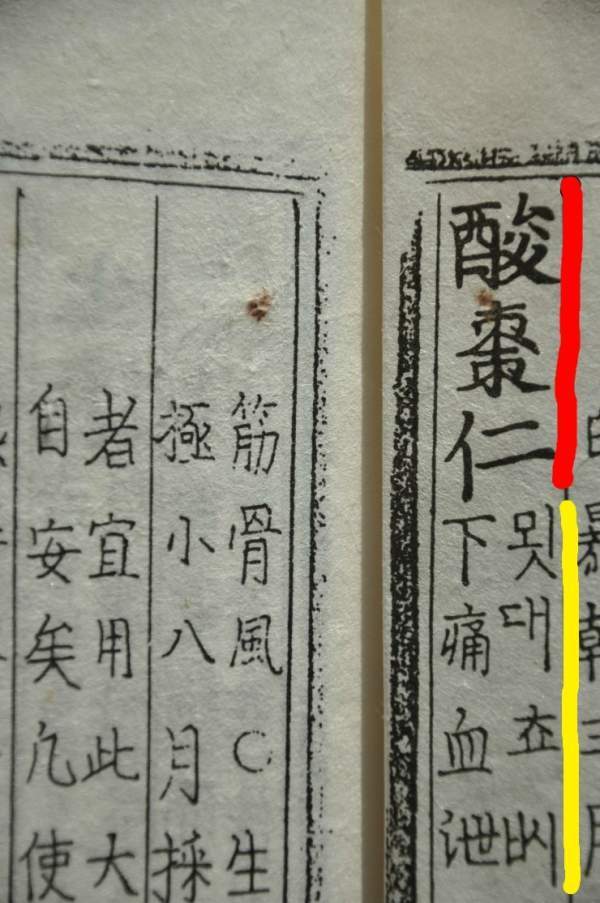 酸棗仁
묏대쵸ᄡᅵ
下痛血泄
筋骨風○生
極小八月採
者宜用此大
自安矣凡使